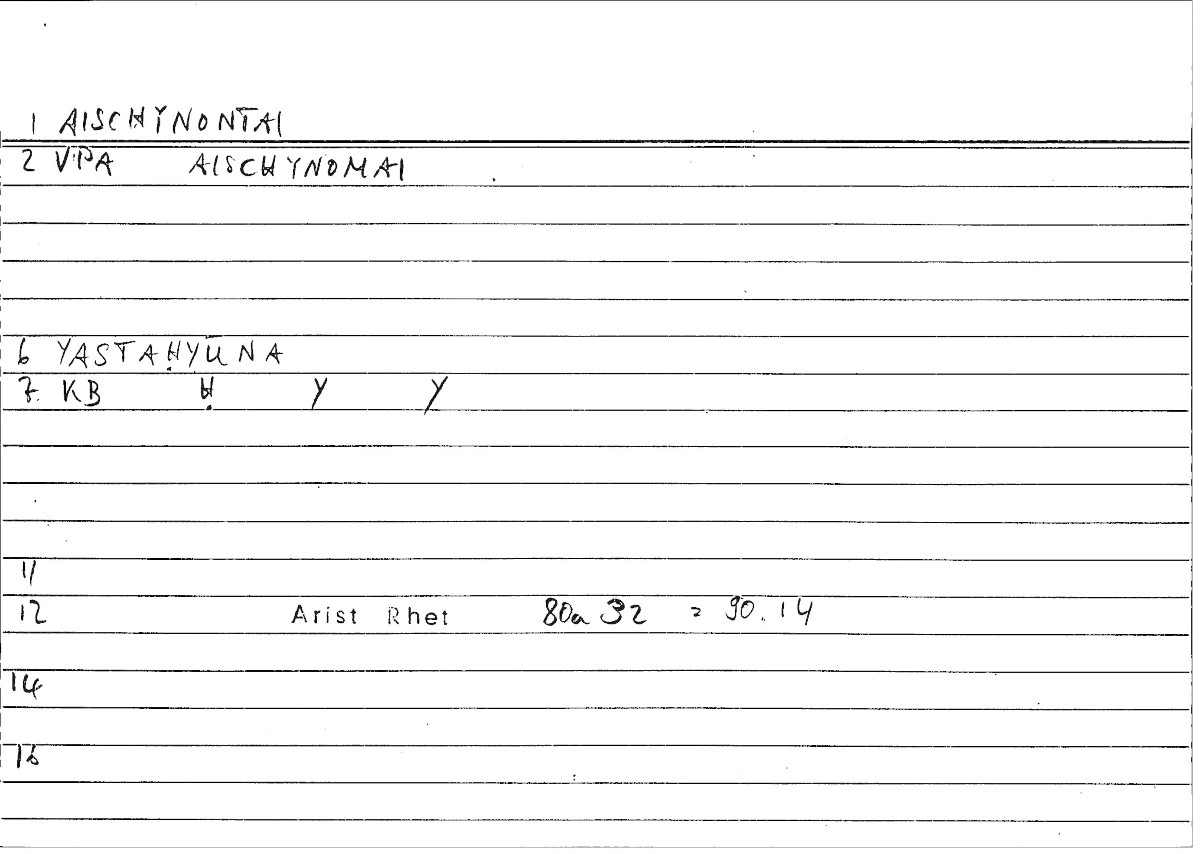 1 AISCHYNONTAI
2 VPA AISCHYNOMAI
6 YASTAḤYŪNA
7. KB Ḥ Y Y
11
12 Arist Rhet 80a 32 = 90.14
14
16